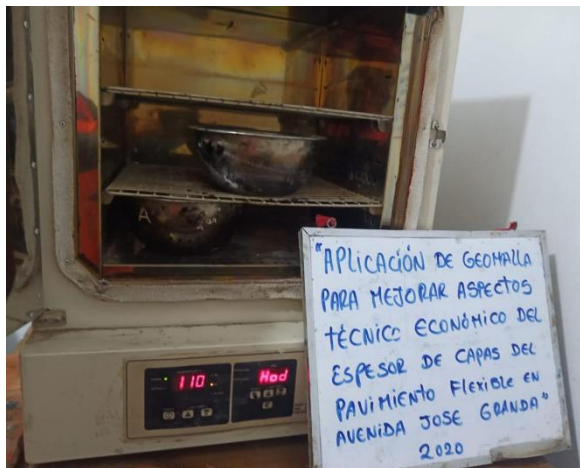 A
110
Hod
"APLICACIÓN DE GEOMALLA
PARA MEJORAR ASPECTOS
TÉCNICO ECONÓMICO DEL
ESPESOR DE CAPAS DEL
PAVIMIENTO FLEXIBLE EN
AVENIDA JOSE GRANDA"
2020